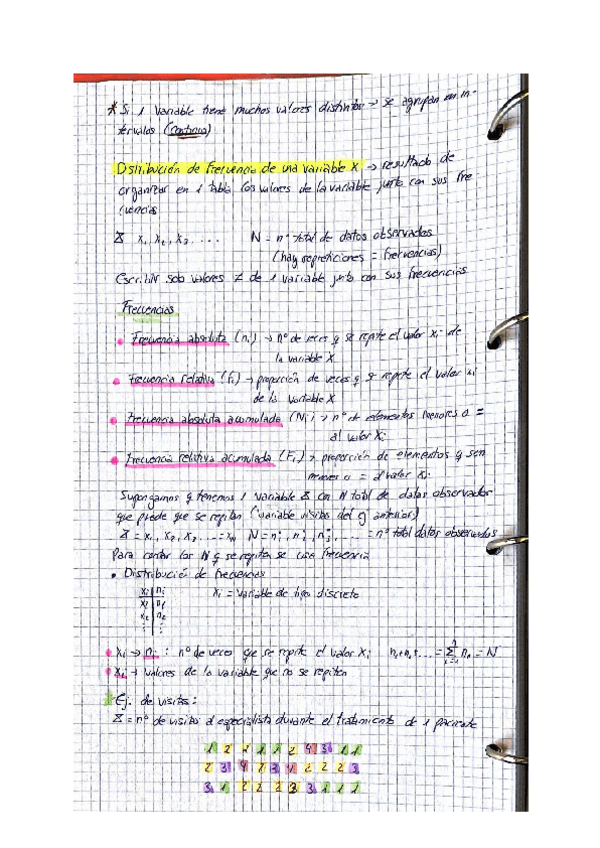 * Si 1 variable tiene muchos valores distintos → se agrupan en in-
tervalos (continua)
Distribución de frecuencia de una variable X → resultado de
organizar en 1 tabla los valores de la variable junto con sus fre
cuencias
X x₁, x₂, x₃, ... N = nº total de datos observados
(hay repeticiones = frecuencias)
Escribir solo valores ≠ de 1 variable junto con sus frecuencias
Frecuencias
• Frecuencia absoluta (ni) → nº de veces q se repite el valor xi de
la variable X
• Frecuencia relativa (fi) → proporción de veces q se repite el valor xi
de la variable X
• Frecuencia absoluta acumulada (Ni) → nº de elementos menores o =
al valor xi
• Frecuencia relativa acumulada (Fi) → proporción de elementos q sen
menores o = al valor xi
Supongamos q tenemos 1 variable X con N total de datos observados
que puede que se repitan (variable visitas del ej anterior)
X = x₁, x₂, x₃ ... = nº total datos observados
Para contar los N q se repiten se usa frecuencia
• Distribución de frecuencias
xi | ni xi = variable de tipo discreto
x₁ | n₁
x₂ | n₂
⋮ | ⋮
• xi → ni : nº de veces que se repite el valor xi n₁+n₂+... = Σ = N
• xi → valores de la variable que no se repiten
Ej. de visitas:
X = nº de visitas al especialista durante el tratamiento de 1 paciente
1 2 2 1 1 2 4 3 1 1
2 3 4 2 3 1 2 2 2 3
3 1 2 2 2 3 3 1 1 1